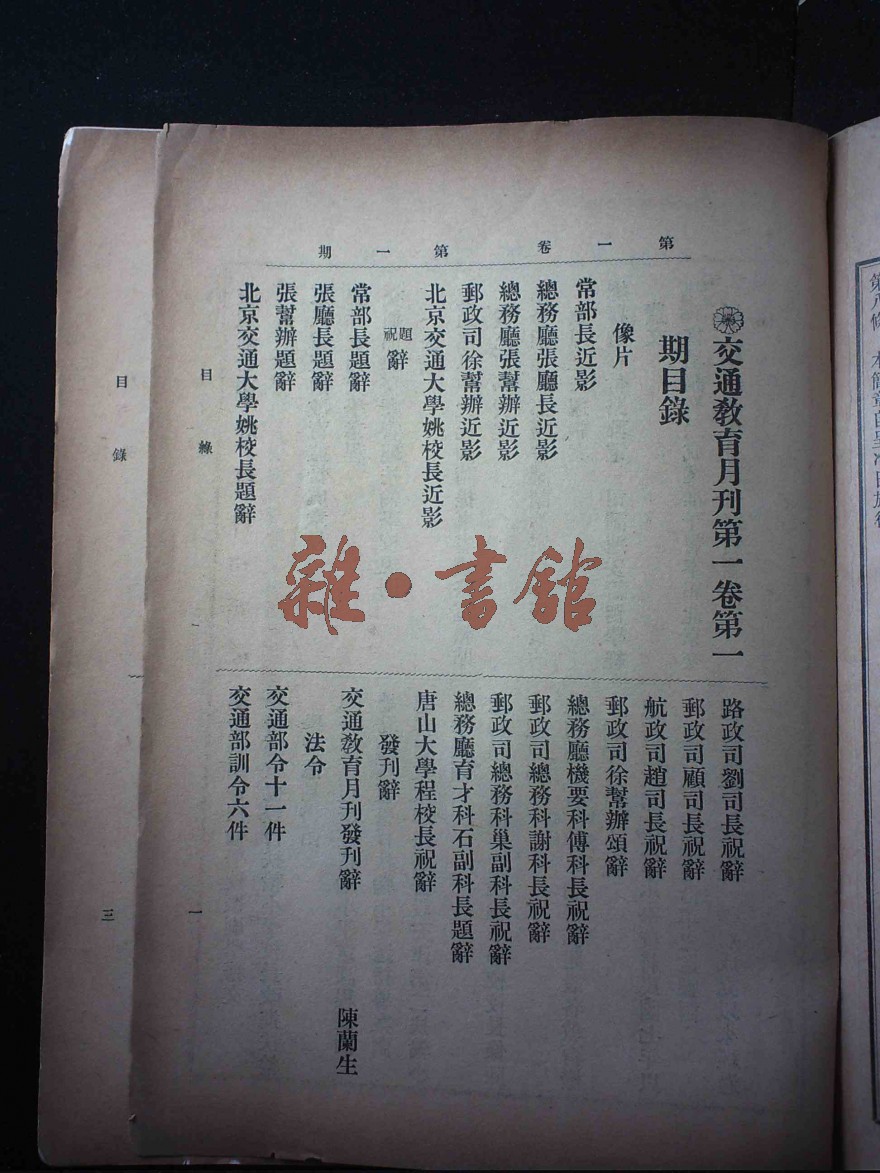 第一卷第一期
交通教育月刊第一卷第一
期目錄
像片
常部長近影
總務廳張廳長近影
總務廳張幫辦近影
郵政司徐幫辦近影
北京交通大學姚校長近影
題祝辭
常部長題辭
張廳長題辭
張幫辦題辭
北京交通大學姚校長題辭
路政司劉司長祝辭
郵政司顧司長祝辭
航政司趙司長祝辭
郵政司徐幫辦頌辭
總務廳機要科傅科長祝辭
郵政司總務科謝科長祝辭
郵政司總務科巢副科長祝辭
總務廳育才科石副科長題辭
唐山大學程校長祝辭
發刊辭
交通教育月刊發刊辭 陳蘭生
法令
交通部令十一件
交通部訓令六件
目錄
一
目錄
三
雜·書館
第八條 本簡章自呈准日施行